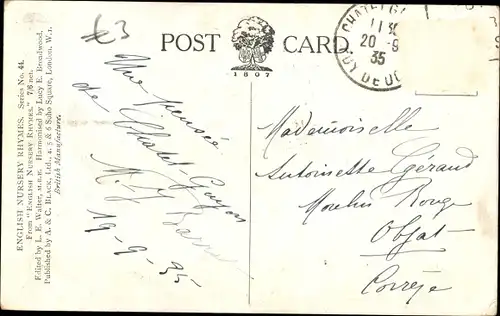 £3
POST CARD.
1807
CHATEL GUYON
11 30
20 -9
35
PUY DE DOME
ENGLISH NURSERY RHYMES. Series No. 44.
From "ENGLISH NURSERY RHYMES." 7/6 net.
Edited by L. E. Walter, M.B.E. Harmonised by Lucy E. Broadwood.
Published by A. & C. BLACK, Ltd., 4, 5 & 6 Soho Square, London, W.1.
British Manufacture.
Une pensée
de Chatel-Guyon
M. J
19-9-35
Mademoiselle
Antoinette Géraud
Moulin Rouge
Objat
Corrèze